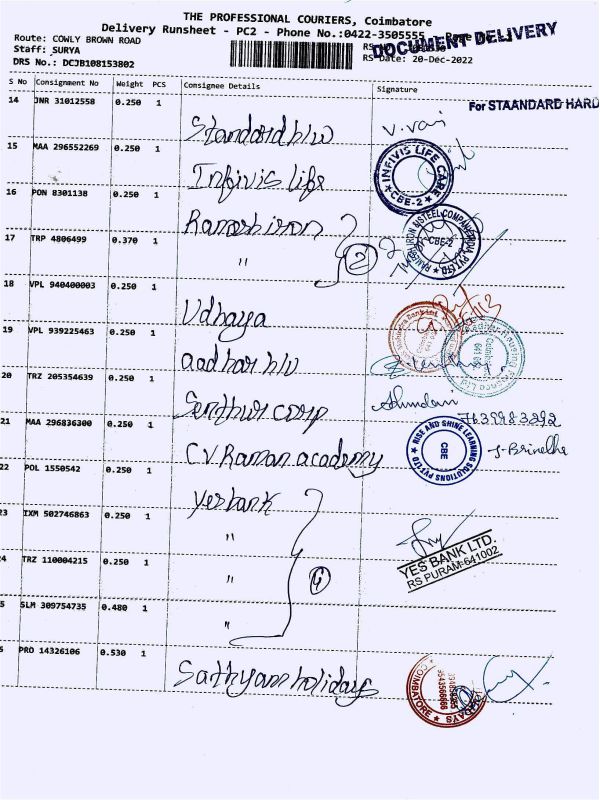 THE PROFESSIONAL COURIERS, Coimbatore
Delivery Runsheet - PC2 - Phone No.:0422-3505555
Route: COWLY BROWN ROAD
Staff: SURYA
DRS No.: DCJB108153802
RS Date: 20-Dec-2022
DOCUMENT DELIVERY
S No Consignment No Weight PCS Consignee Details Signature
For STAANDARD HARD
14 JNR 31012558 0.250 1 Standard h/w
15 MAA 296552269 0.250 1 Infivis life
INFIVIS LIFE CARE
CBE-2
16 PON 8301138 0.250 1 Ramesh iron
17 TRP 4806499 0.370 1 " 2
CBE-2
18 VPL 940400003 0.250 1 Udhaya
19 VPL 939225463 0.250 1 aadhar h/v
20 TRZ 205354639 0.250 1 Senthur corp
7639983292
21 MAA 296836300 0.250 1 CV Raman academy
RISE AND SHINE LEARNING SOLUTIONS PVT LTD
CBE
22 POL 1550542 0.250 1 Yes bank
23 IXM 502746863 0.250 1 "
24 TRZ 110004215 0.250 1 " 4
YES BANK LTD.
RS PURAM-641002
5 SLM 309754735 0.480 1 "
6 PRO 14326106 0.530 1 Sathyam holidays
COIMBATORE